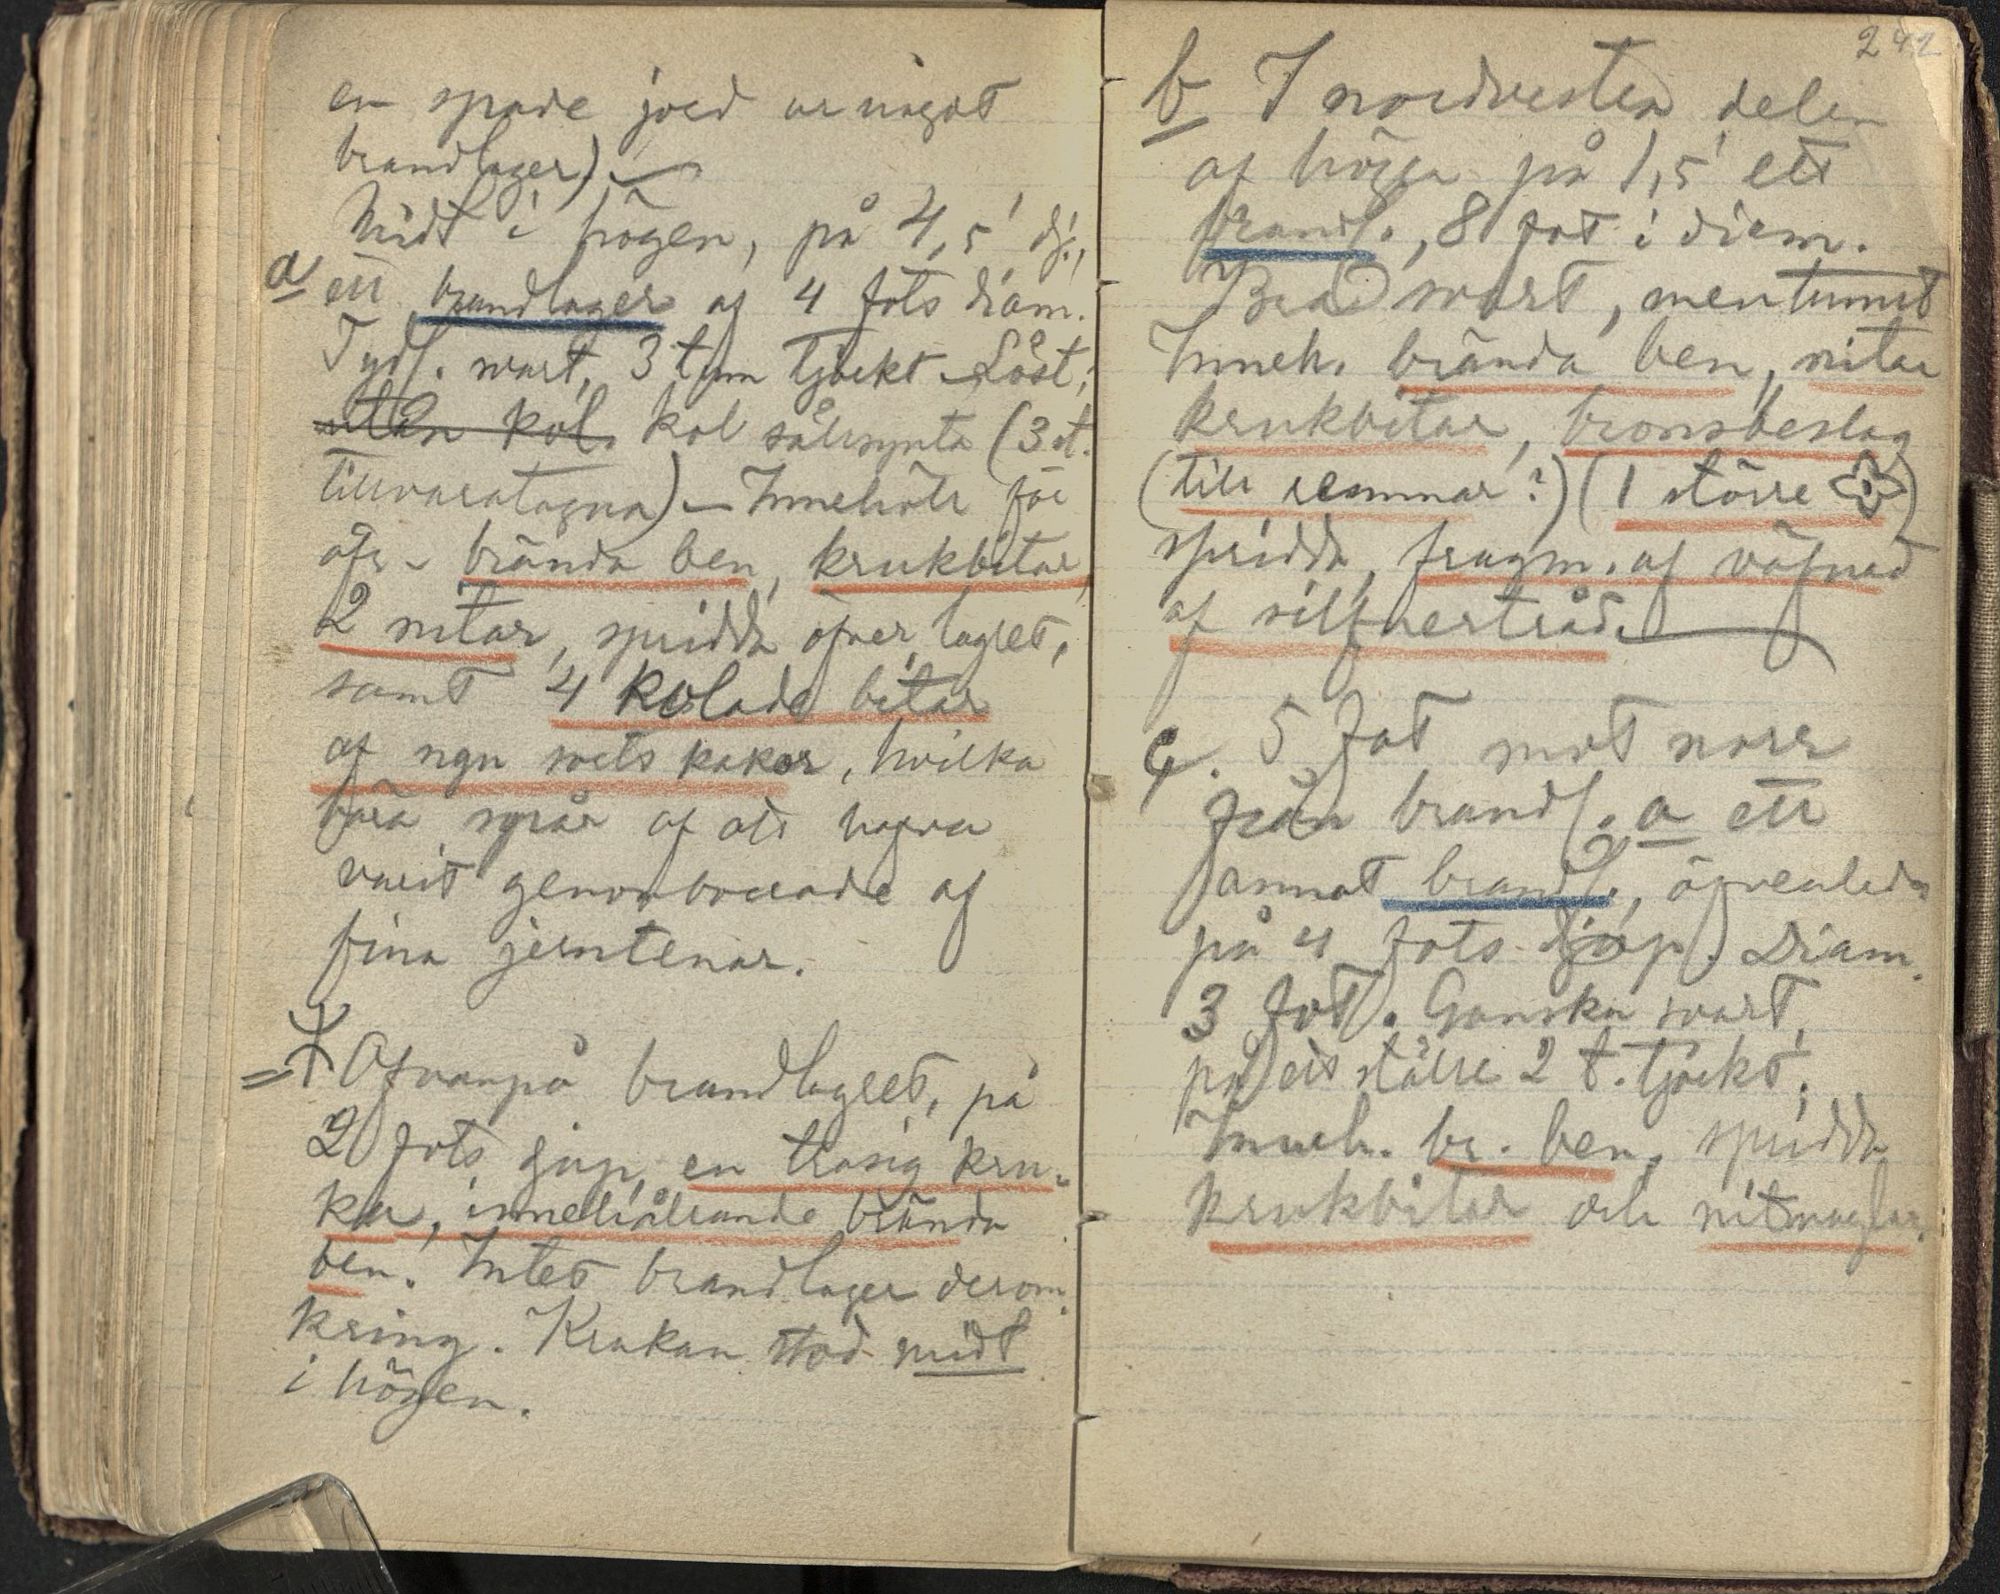 en spade jord ur något
brandlager). —
Midt i högen, på 4,5' dj.,
a ett brandlager af 4 fots diam.
Tydl. svart, 3 tum tjockt. Löst;
utan kol. kol sälsynta (3 st.
tillvaratagna) — Innehöll för
öfr. brända ben, krukbitar,
2 nitar, spridda öfver lagret,
samt 4 kolade bitar
af ngn sorts kakor, hvilka
bära spår af att hafva
varit genomborrade af
fina jerntenar.
Ofvanpå brandlagret, på
2 fots djup, en trasig kru-
ka, innehållande brända
ben. Intet brandlager derom-
kring. Krukan stod midt
i högen.
242
b I nordvestra delen
af högen på 1,5' ett
brandl., 8 fot i diam.
Bra svart, men tunnt
Inneh. brända ben, nitar
krukbitar, bronsbeslag
(till remmar?) (1 större )
spridda, fragm. af väfnad
af silfvertråd. —
c. 5 fot mot norr
från brandl. a ett
annat brandl., äfvenledes
på 4 fots djup. Diam.
3 fot. Ganska svart,
på ett ställe 2 t. tjockt.
Inneh. br. ben, spridda
krukbitar och nitnaglar.